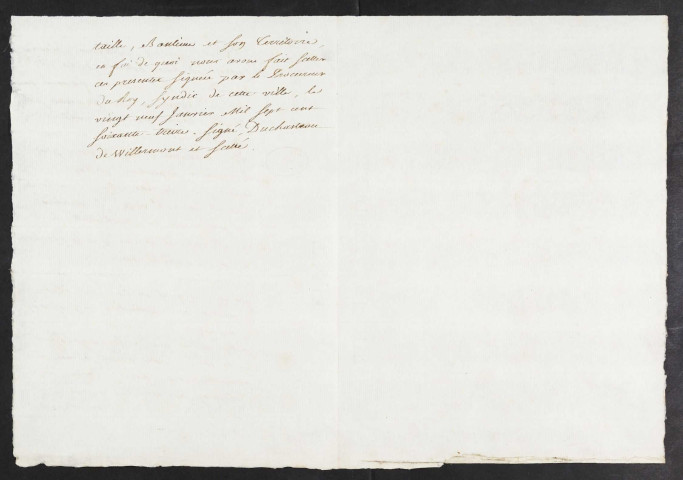 taille, Banlieue et son Territoire,
en foi de quoi nous avons fait sceller
ces presentes signées par le Procureur
du Roy, syndic de cette ville, le
vingt neuf Janvier Mil sept cent
soixante-treize. signé, Duchasteau
de Willermont et scellé.